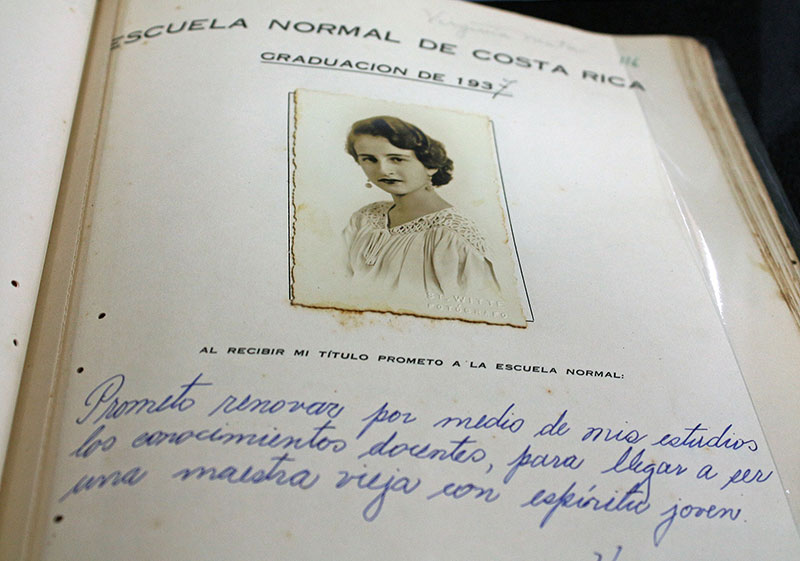 Virginia Mata
116
ESCUELA NORMAL DE COSTA RICA
GRADUACION DE 1937
WITTE
FOTOGRAFO
AL RECIBIR MI TÍTULO PROMETO A LA ESCUELA NORMAL:
Prometo renovar por medio de mis estudios
los conocimientos docentes, para llegar a ser
una maestra vieja con espíritu joven.